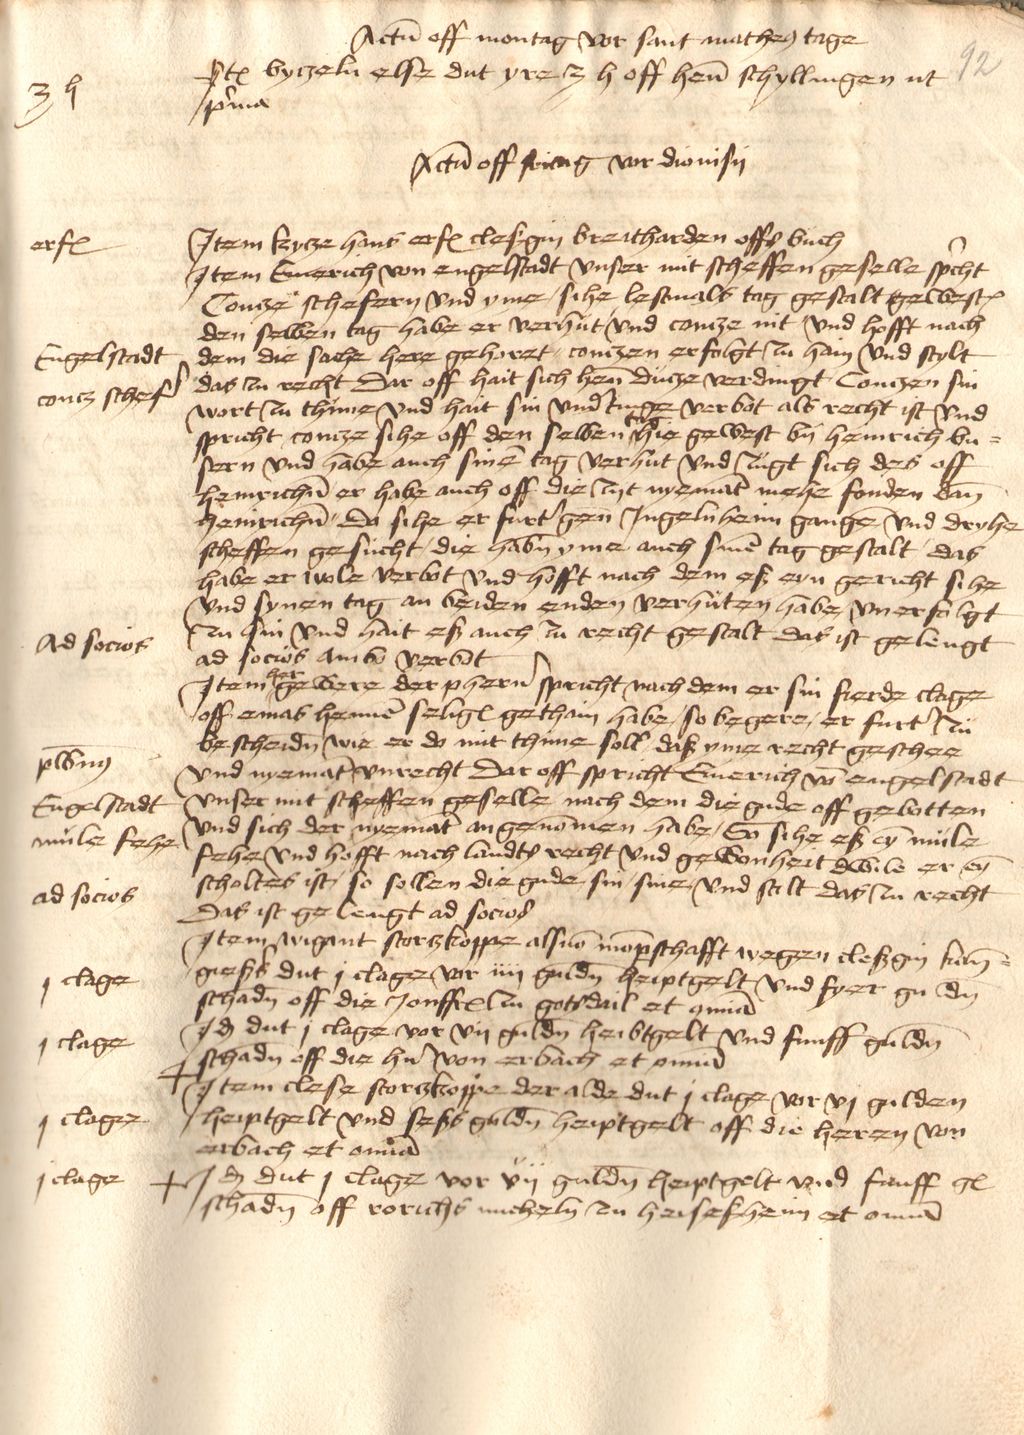 Actu off montag vor sant matheus tage
92
3 h
byczeln else dut yre 3 h off hen schyllingen ut
prima
Actu off fritag vor dionisii
erf
Item kycze hans erf cleßgin breitharden offs buch
Item Emerich von engelstadt unser mit scheffen geselle spricht
Concze schefern und yme sihe lestmals tag gestalt gewest
den selben tag habe er verhut und concze nit und hofft nach
Engelstadt
dem die sache here gehoret conczen erfolgt zu hain und stylt
concz schefer
das zu recht Dar off hait sich hen ducze verdingt Conczen sin
wort zu thune und hait sin underdinge verbot als recht ist und
spricht concze sihe off den selben tag hie gewest by heinrich bu=
sern und habe auch sine tag verhut und zugt sich des off
heinrichn er habe auch off die zijt nyemat mehe fonden dan
heinrichn Da sihe er furt gen Ingelnheim gange und dryhe
scheffen gesucht die habn yme auch sine tag gestalt das
habe er wole verbot und hofft nach dem eß eyn gericht sihe
und synen tag an beiden enden verhuten habe unerfolgt
Ad socios
zu sin und hait eß auch zu recht gestalt das ist gelengt
ad socios ambo verbot
Item her gewere der phern spricht nach dem er sin fierde clage
off emas henne selig gethain habe so begere er furt zu
bescheidn wie er do mit thune soll daß yme recht geschee
plbnus
und nyemat unrecht Dar off spricht Emerich vo engelstadt
Engelstadt
unser mit scheffen geselle nach dem die gude off gebotten
mule fehe
und sich der nyemat angenomen habe So sihe eß ey mule
fehe und hofft nach landts recht und gewonheit dwile er ey
ad socios
scholtes ist so sollen die gude sin sine und stilt das zu recht
Das ist gelengt ad socios
Item wigant stortzkoppe alsuo mopschafft wegen cleßgin kun=
j clage
gieß dut j clage vor iiij guldn heiptgelt und fyer guldn
schadn off die Jonffr zu gotsdail et omnia
j clage
Id dut j clage vor vij guldn heibtgelt und funff guldn
schadn off die hn von erbach et omnia
Item clese stortzkoppe der alde dut j clage vor vj gulden
j clage
heiptgelt und seßs guldn heiptgelt off die heren von
erbach et omnia
j clage
Id dut j clage vor vij guldn heiptgelt und funff gl
schadn off rorichs micheln zu heisesheim et omnia